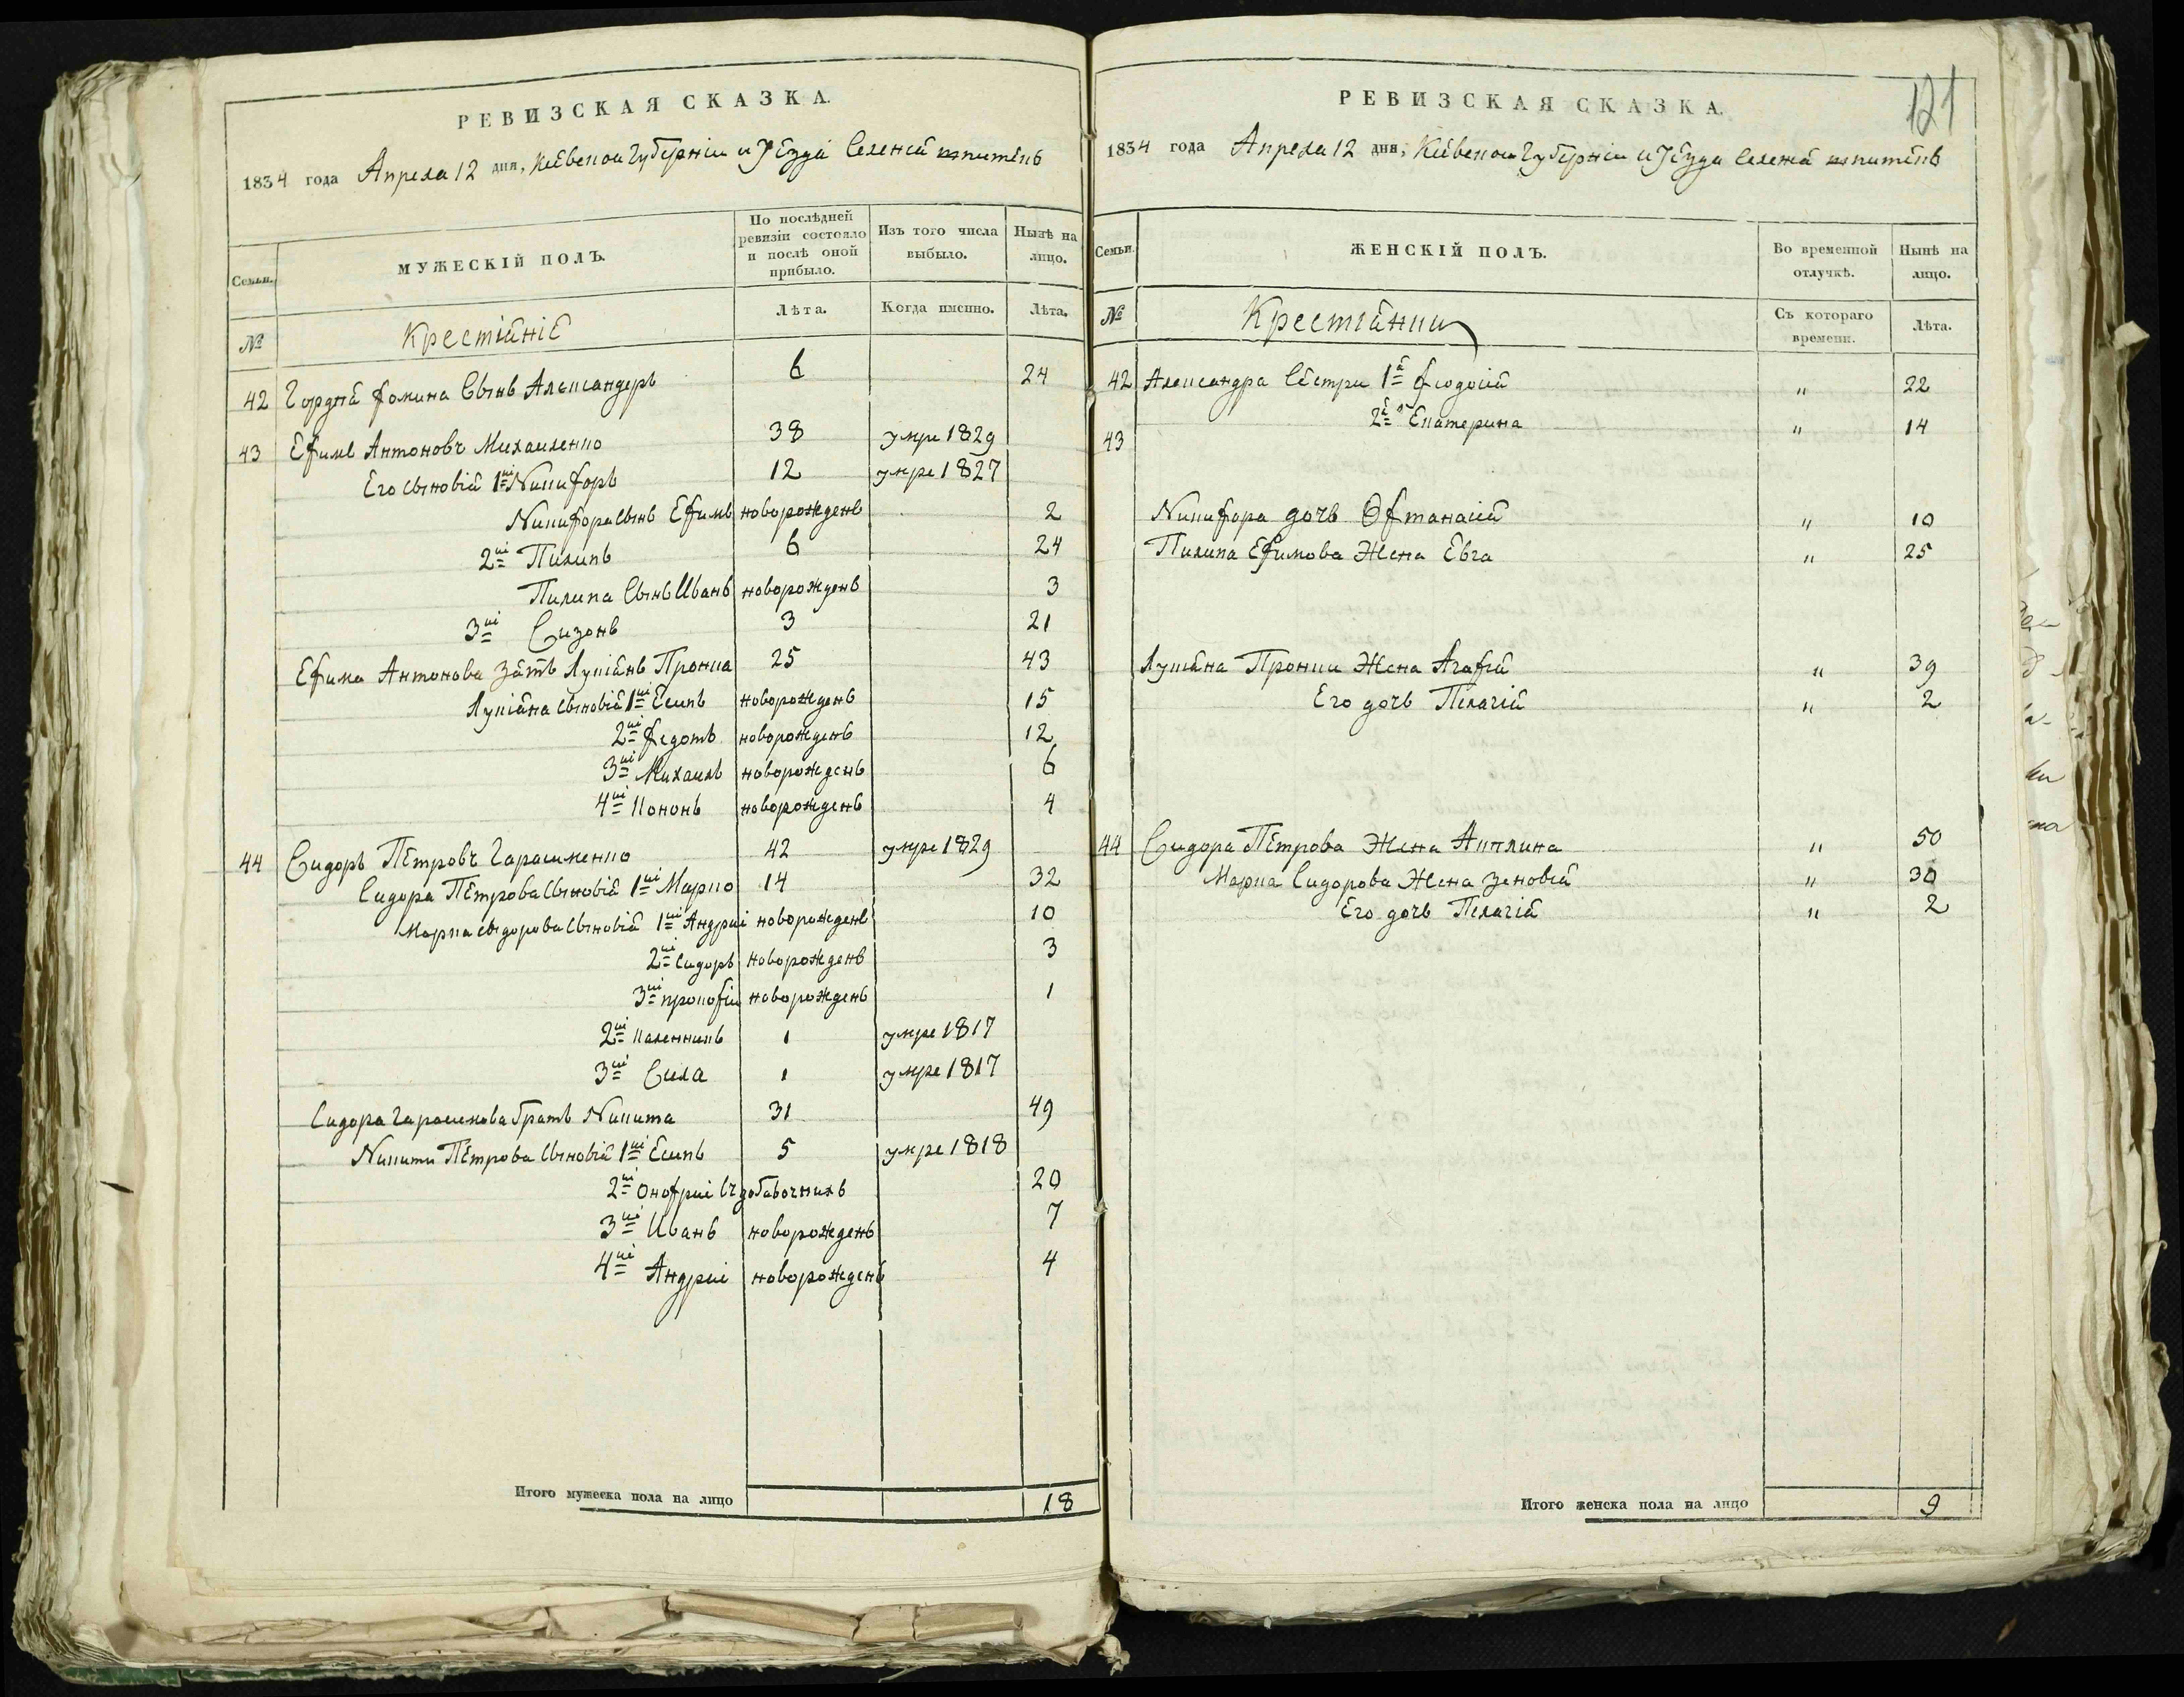 РЕВИЗСКАЯ СКАЗКА.
1834 года Апреля 12 дня, Кіевской Губерніи и Уезда Селенія
Семьи.
МУЖЕСКІЙ ПОЛЪ.
По послѣдней ревизіи состояло и послѣ оной прибыло.
Изъ того числа выбыло.
Нынѣ на лицо.
№
Крестіяніе
Лѣта.
Когда именно.
Лѣта.
42 Гордѣя Фомина Сынъ Александеръ 6 24
43 Ефимъ Антоновъ Михаиленко 38 умре 1829
Его сыновія 1й Никифоръ 12 умре 1827
Никифора сынъ Ефимъ новорожденъ 2
2й Пилипъ 6 24
Пилипа Сынъ Иванъ новорожденъ 3
3й Сизонъ 3 21
Ефима Антонова Зять Лукіянъ Пронка 25 43
Лукіяна сыновія 1й Есипъ новорожденъ 15
2й Федотъ новорожденъ 12
3й Михаилъ новорожденъ 6
4й Кононъ новорожденъ 4
44 Сидоръ Петровъ Гарасименко 42 умре 1829
Сидора Петрова Сыновія 1й Марко 14 32
Марка Сидорова Сыновія 1й Андрѣй новорожденъ 10
2й Сидоръ новорожденъ 3
3й прокофій новорожденъ 1
2й Каленикъ 1 умре 1817
3й Сила 1 умре 1817
Сидора Гарасимова братъ Никита 31 49
Никити Петрова Сыновія 1й Есипъ 5 умре 1818
2й Онофрій въ добавочнихъ 20
3й Иванъ новорожденъ 7
4й Андрѣй новорожденъ 4
Итого мужеска пола на лицо 18
121
РЕВИЗСКАЯ СКАЗКА.
1834 года Апреля 12 дня, Кіевской Губерніи и Уезда Селенія
Семьи.
ЖЕНСКІЙ ПОЛЪ.
Во временной отлучкѣ.
Нынѣ на лицо.
№
Крестіянки
Съ котораго времени.
Лѣта.
42 Александра Сестри 1я Феодосія " 22
2я Екатерина " 14
43
Никифора дочь Офтанасія " 10
Пилипа Ефимова Жена Евга " 25
Лукіяна Пронки Жена Агафія " 39
Его дочь Пелагія " 2
44 Сидора Петрова Жена Акилина " 50
Марка Сидорова Жена Зеновія " 30
Его дочь Пелагія " 2
Итого женска пола на лицо 9